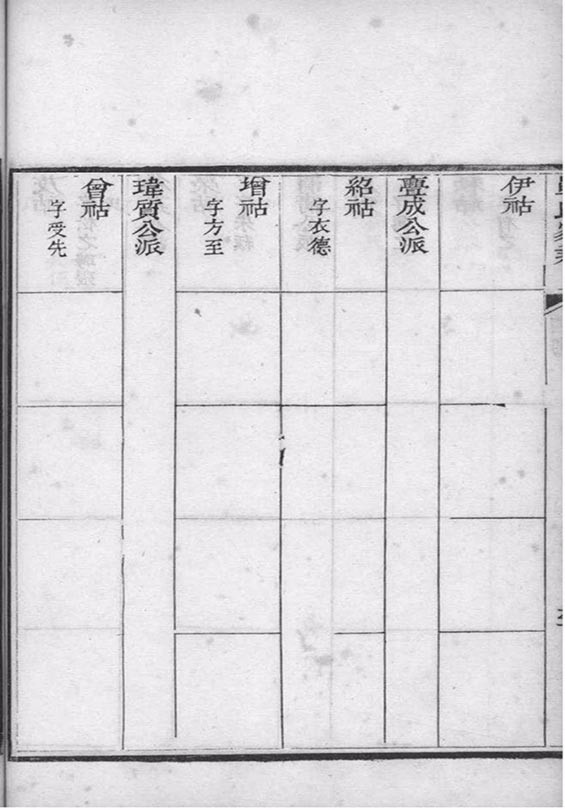 伊祜
亹成公派
紹祜
字衣德
增祜
字方至
瑋質公派
曾祜
字受先